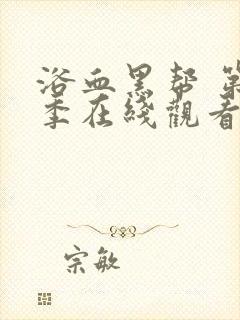 浴血黑帮 第
季在线觀看
宗敏